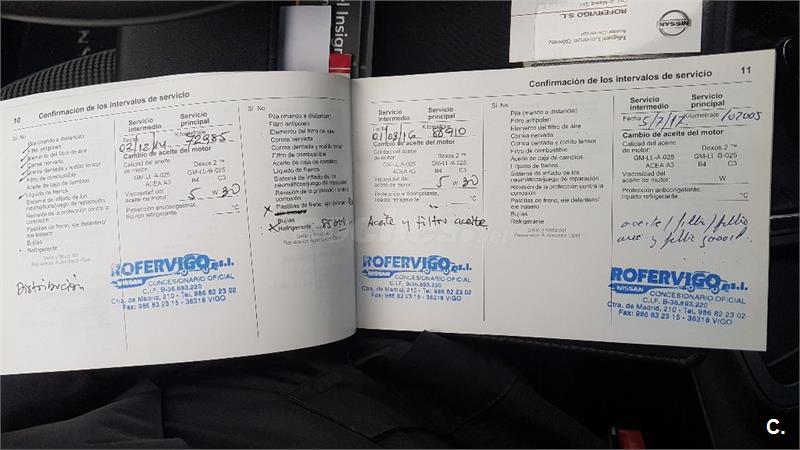 Insign
ROFERVIGO S.L.
NISSAN
Miguel Lorenzo Gómez
10 Confirmación de los intervalos de servicio
Sí No
Pila (mando a distancia)
Filtro antipolen
Elemento del filtro de aire
Correa nervada
Correa dentada y rodillo tensor
Filtro de combustible
Aceite de caja de cambios
Líquido de frenos
Sistema de inflado de los
neumáticos/juego de reparación
Revisión de la protección contra la
corrosión
Pastillas de freno, eje delantero/
eje trasero
Bujías
Refrigerante
Sello y firma del
Reparador Autorizado Opel
Distribución
Servicio intermedio
Servicio principal
Fecha Kilometraje
02/12/14 72985
Cambio de aceite del motor
Calidad del aceite
de motor:
Dexos 2 ™
GM-LL-A-025 GM-LL-B-025
ACEA A3 B4 C3
Viscosidad del
aceite de motor: 5 W 30
Protección anticongelante,
líquido refrigerante °C
ROFERVIGO s.l.
NISSAN CONCESIONARIO OFICIAL
C.I.F. B-36.893.220
Ctra. de Madrid, 210 - Tel. 986 82 23 02
Fax: 986 53 23 15 - 36318 VIGO
Sí No
Pila (mando a distancia)
Filtro antipolen
Elemento del filtro de aire
Correa nervada
Correa dentada y rodillo tensor
Filtro de combustible
Aceite de caja de cambios
Líquido de frenos
Sistema de inflado de los
neumáticos/juego de reparación
Revisión de la protección contra la
corrosión
X Pastillas de freno, eje
Bujías
X Refrigerante
Sello y firma del
Reparador Autorizado Opel
Confirmación de los intervalos de servicio 11
Servicio intermedio
Servicio principal
Fecha Kilometraje
01/03/16 88910
Cambio de aceite del motor
Calidad del aceite
de motor:
Dexos 2 ™
GM-LL-A-025 GM-LL-B-025
ACEA A3 B4 C3
Viscosidad del
aceite de motor: 5 W 30
Protección anticongelante,
líquido refrigerante °C
Aceite y filtro aceite
ROFERVIGO s.l.
NISSAN CONCESIONARIO OFICIAL
C.I.F. B-36.893.220
Ctra. de Madrid, 210 - Tel. 986 82 23 02
Fax: 986 53 23 15 - 36318 VIGO
Sí No
Pila (mando a distancia)
Filtro antipolen
Elemento del filtro de aire
Correa nervada
Correa dentada y rodillo tensor
Filtro de combustible
Aceite de caja de cambios
Líquido de frenos
Sistema de inflado de los
neumáticos/juego de reparación
Revisión de la protección contra la
corrosión
Pastillas de freno, eje delantero/
eje trasero
Bujías
Refrigerante
Sello y firma del
Reparador Autorizado Opel
Servicio intermedio
Servicio principal
Fecha Kilometraje
5/7/17 102005
Cambio de aceite del motor
Calidad del aceite
de motor:
Dexos 2 ™
GM-LL-A-025 GM-LL-B-025
ACEA A3 B4 C3
Viscosidad del
aceite de motor: W
Protección anticongelante,
líquido refrigerante °C
aceite / filtro / filtro
aire y filtro
ROFERVIGO s.l.
NISSAN CONCESIONARIO OFICIAL
C.I.F. B-36.893.220
Ctra. de Madrid, 210 - Tel. 986 82 23 02
Fax: 986 53 23 15 - 36318 VIGO
C.